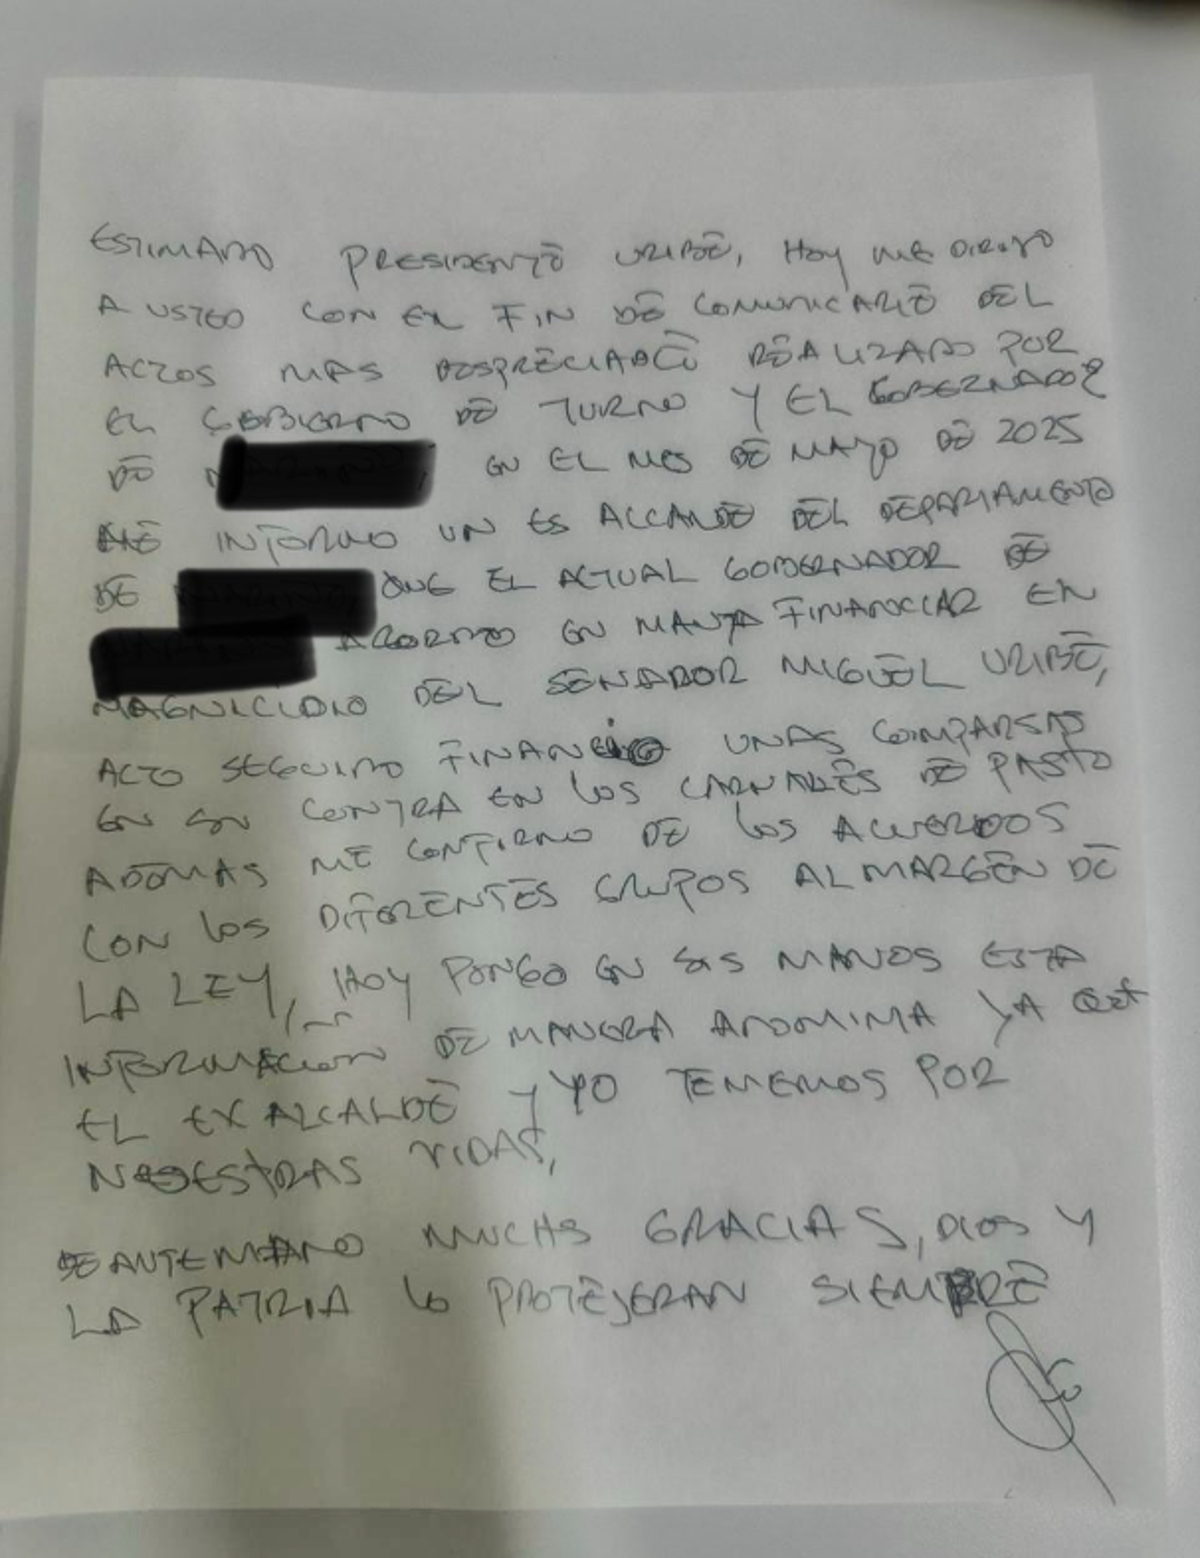 ESTIMADO PRESIDENTE URIBE, HOY ME DIRIJO
A USTED CON EL FIN DE COMUNICARLE DEL
ACTOS MAS DESPRECIABLE REALIZADO POR
EL GOBIERNO DE TURNO Y EL GOBERNADOR
DE EN EL MES DE MAYO DE 2025
ME INFORMO UN ES ALCANDE DEL DEPARTAMENTO
DE QUE EL ACTUAL GOBERNADOR DE
ACORDO EN MANTA FINANCIAR EN
MAGNICIDIO DEL SENADOR MIGUEL URIBE,
ACTO SEGUIDO FINANCIO UNAS COMPARSAS
EN SU CONTRA EN LOS CARNAVALES DE PASTO
ADEMAS ME CONFIRMO DE LOS ACUERDOS
CON LOS DIFERENTES GRUPOS AL MARGEN DE
LA LEY, HOY PONGO EN SUS MANOS ESTA
INFORMACION DE MANERA ANONIMA YA QUE
EL EX ALCALDE Y YO TENEMOS POR
NUESTRAS VIDAS,
DE ANTEMANO MUCHS GRACIAS, DIOS Y
LA PATRIA LO PROTEJERAN SIEMPRE